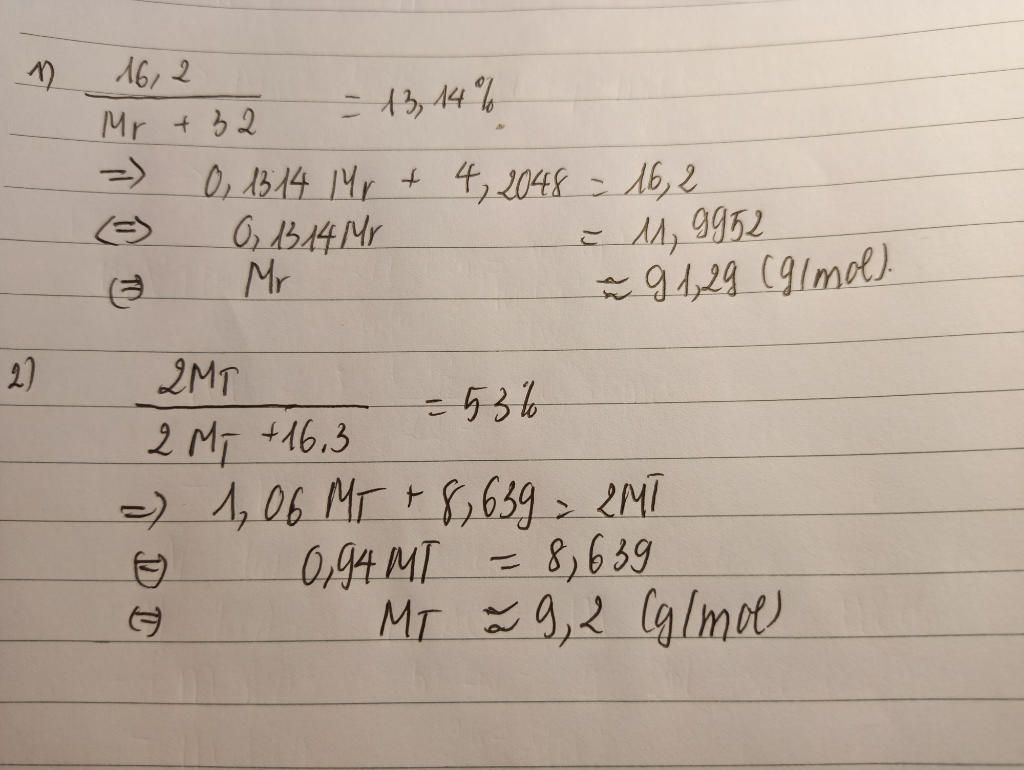 1) 16,2 / Mr + 32 = 13,14%
=> 0,1314 Mr + 4,2048 = 16,2
<=> 0,1314Mr = 11,9952
<=> Mr ≈ 91,29 (g/mol).
2) 2MT / 2 MT +16.3 = 53%
=> 1,06 MT + 8,639 = 2MT
<=> 0,94MT = 8,639
<=> MT ≈ 9,2 (g/mol)